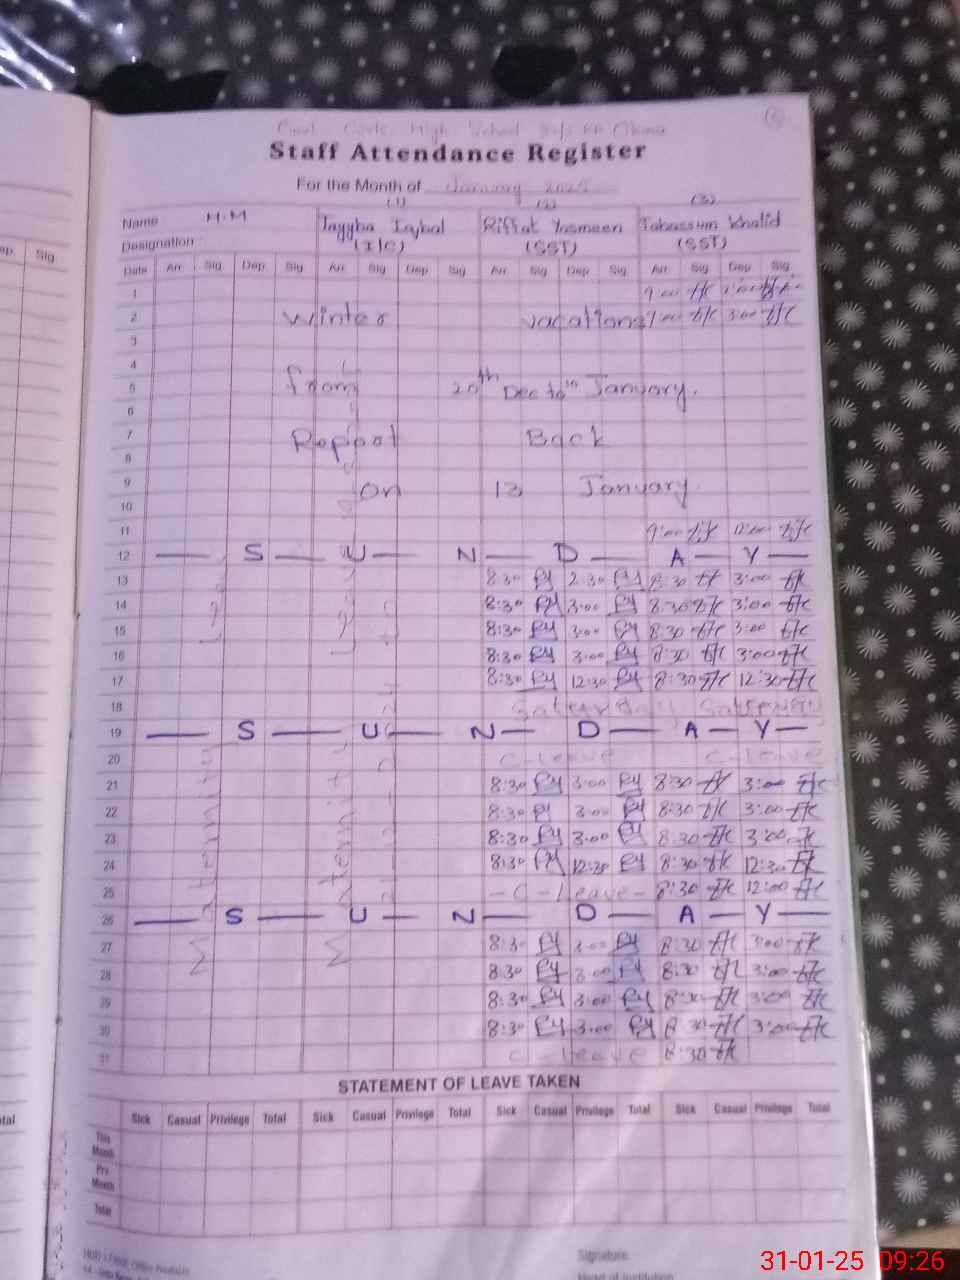 High School
Staff Attendance Register
For the Month of January 2025
(1) (2) (3)
Name H.M Tayyba Iqbal Riffat Yasmeen Tabassum Khalid
Designation (I/C) (SST) (SST)
Date Arr Sig Dep Sig Arr Sig Dep Sig Arr Sig Dep Sig Arr Sig Dep Sig
1 9:00
2 Winter vacations 9:00 3:00
3
4
5 from 20th Dec to January.
6
7 Reppot Back
8
9 on 13 January.
10
11 9:00 12:00
12 — S — U — N — D — A — Y —
13 8:30 2:30 8:30 3:00
14 8:30 3:00 8:30 3:00
15 8:30 3:00 8:30 3:00
16 8:30 3:00 8:30 3:00
17 8:30 12:30 8:30 12:30
18 Saturday
19 — S — U — N — D — A — Y —
20 C-leave C-leave
21 8:30 3:00 8:30 3:00
22 8:30 3:00 8:30 3:00
23 8:30 3:00 8:30 3:00
24 8:30 12:30 8:30 12:30
25 - C - Leave - 8:30 12:00
26 — S — U — N — D — A — Y —
27 8:30 3:00 8:30 3:00
28 8:30 3:00 8:30 3:00
29 8:30 3:00 8:30 3:00
30 8:30 3:00 8:30 3:00
31 C-leave 8:30
Maternity Leave
Maternity Leave
STATEMENT OF LEAVE TAKEN
Sick Casual Privilege Total Sick Casual Privilege Total Sick Casual Privilege Total Sick Casual Privilege Total
This Month
Prv Month
Total
Signature
Head of Institution
31-01-25 09:26